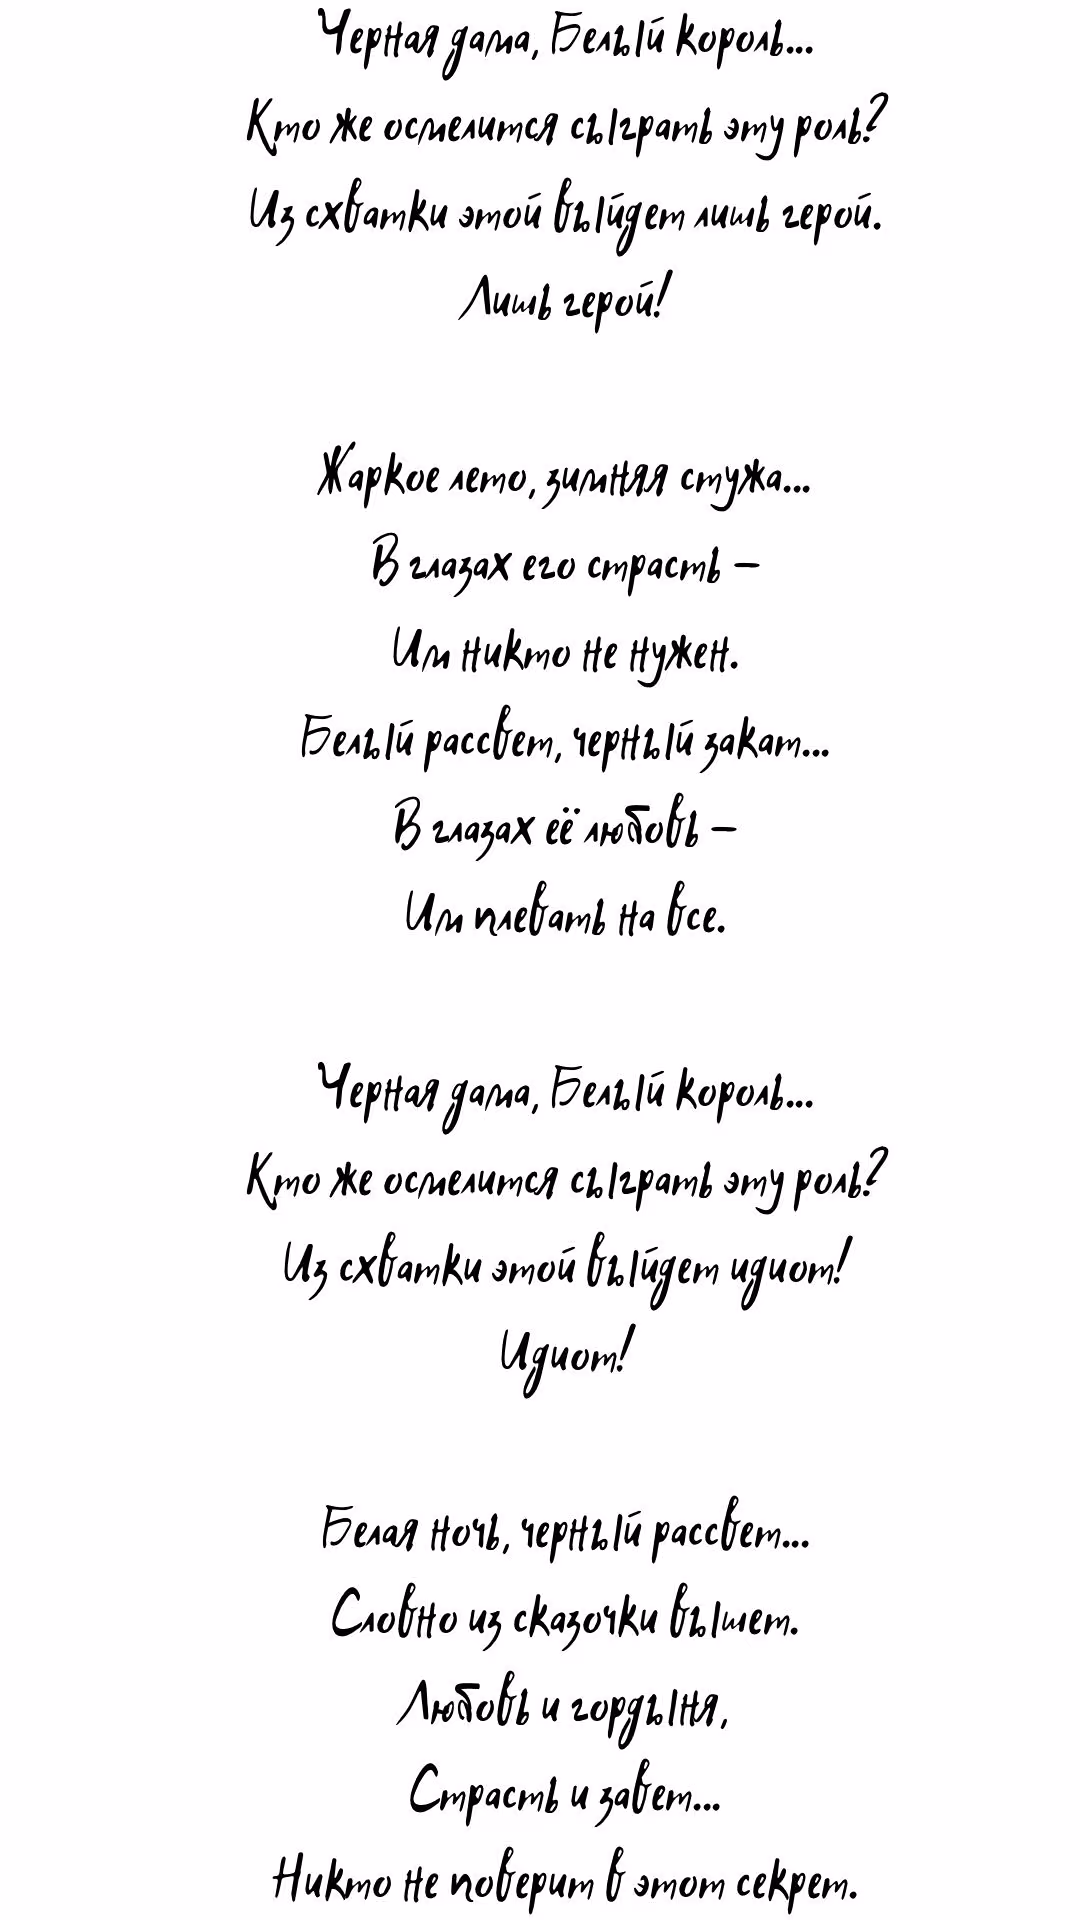 Черная дама, Белый король...
Кто же осмелится сыграть эту роль?
Из схватки этой выйдет лишь герой.
Лишь герой!
Жаркое лето, зимняя стужа...
В глазах его страсть –
Им никто не нужен.
Белый рассвет, черный закат...
В глазах её любовь –
Им плевать на все.
Черная дама, Белый король...
Кто же осмелится сыграть эту роль?
Из схватки этой выйдет идиот!
Идиот!
Белая ночь, черный рассвет...
Словно из сказочки вышет.
Любовь и гордыня,
Страсть и завет...
Никто не поверит в этот секрет.